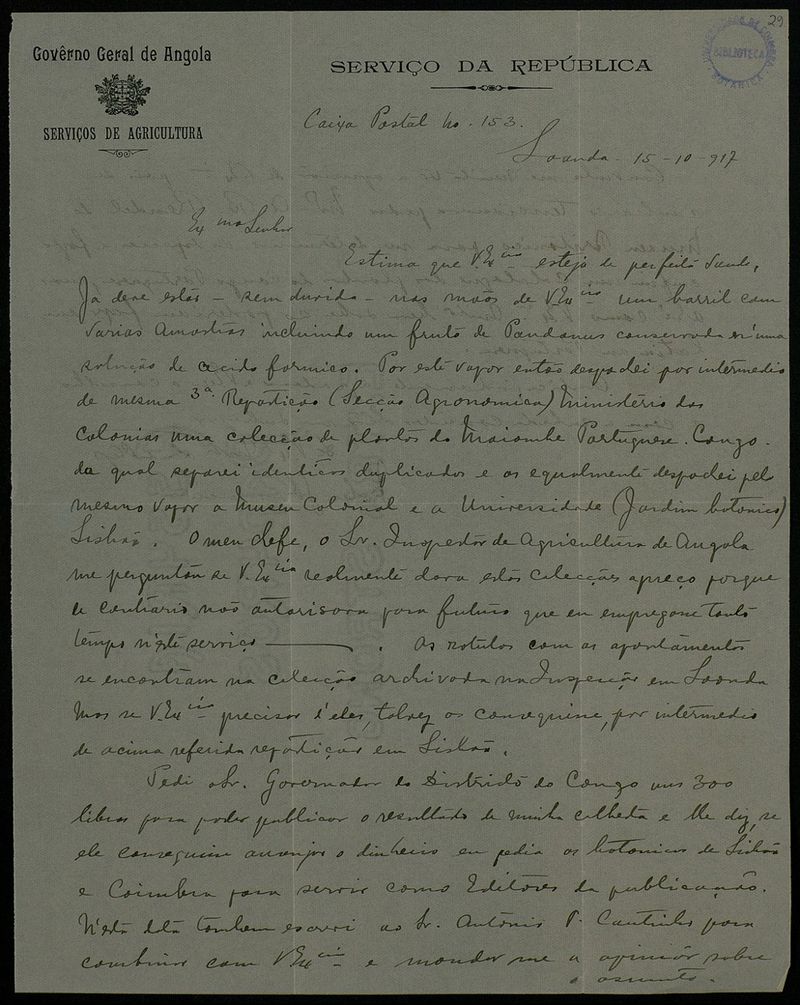 29
Govêrno Geral de Angola
SERVIÇOS DE AGRICULTURA
SERVIÇO DA REPÚBLICA
UNIVERSIDADE DE COIMBRA
BIBLIOTECA
BOTANICA
Caixa Postal No. 153.
Loanda - 15-10-917
Exmo Senhor
Estima que V. Excia esteja de perfeita saude,
Já deve estar - sem duvida - nas mãos de V. Excia um barril com
varias amostras incluindo um fruto de Pandanus conservado n'uma
solução de acido formico. Por este vapor então despachei por intermedio
de mesma 3ª Repartição (Secção Agronomica) Ministério das
Colonias uma colecção de plantas do Maiombe Portuguese. Congo.
da qual separei identicos duplicados e os egualmente despachei pelo
mesmo vapor a Museu Colonial e a Universidade (Jardim botanico)
Lisbôa. O meu chefe, o Sr. Inspector de Agricultura de Angola
me perguntou se V. Excia realmente dara estas colecções apreço porque
de contrario não autorisara para futuro que eu empregasse tanto
tempo n'este serviço. Os rotulos com os apontamentos
se encontram na colecção archivada na Inspeção em Loanda
mas se V. Excia precisar d'eles, talvez os consequine, por intermedio
de acima referida repartição em Lisbôa.
Pedi o Sr. Governador do Districto do Congo uns 300
libras para poder publicar o resultado de minha colheita e lhe diz, se
ele conseguiu arranjar o dinheiro eu pedia os botanicos de Lisbôa
e Coimbra para servir como Editores da publicação.
N'esta data tambem escrevi ao Sr. António P. Coutinho para
combinar com V. Excia e mandar me a opinião sobre
o assunto.